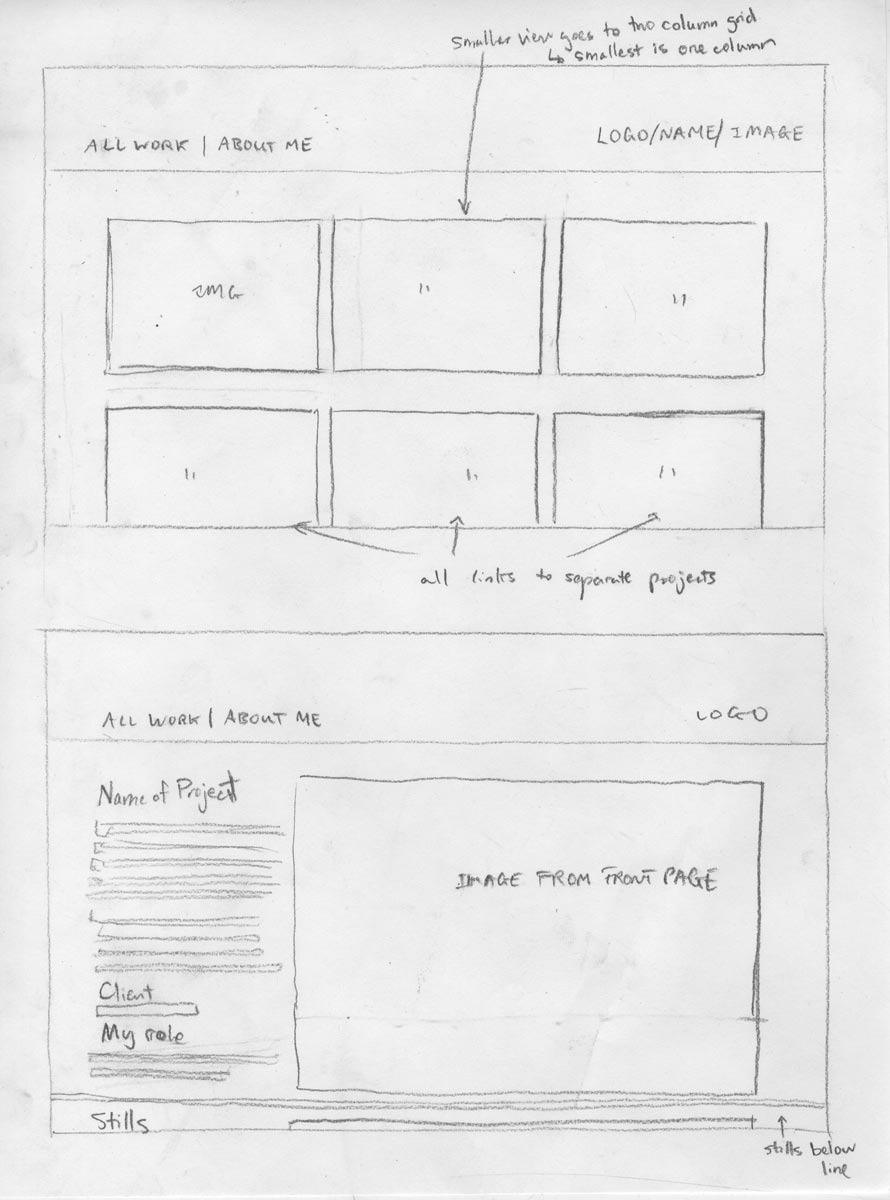 smaller view goes to two column grid
↳ smallest is one column
ALL WORK | ABOUT ME
LOGO/NAME/IMAGE
IMG
"
"
"
"
"
all links to separate projects
ALL WORK | ABOUT ME
LOGO
Name of Project
IMAGE FROM FRONT PAGE
Client
My role
Stills
stills below
line